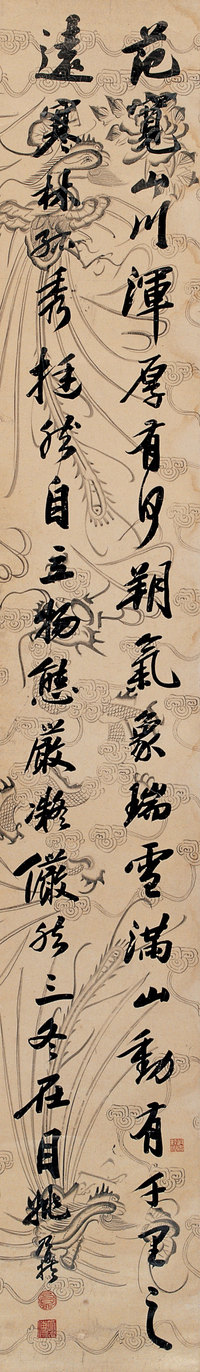 范寬山川渾厚有河朔氣象瑞雪滿山動有千里之
遠寒林孤秀挺然自立物態嚴凝儼然三冬在目姚鼐